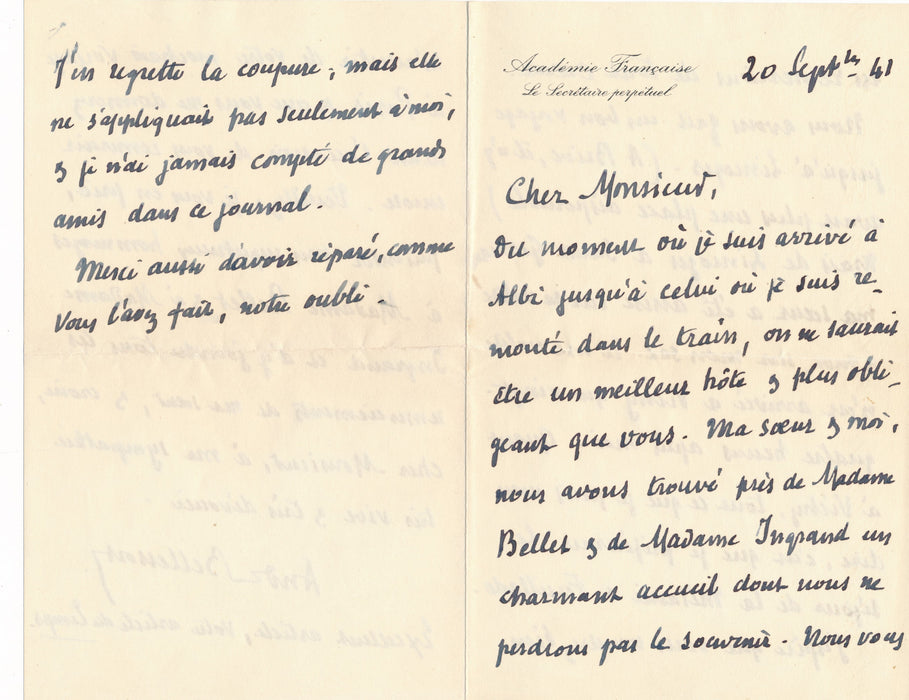 Académie Française
Le Secrétaire perpétuel
20 Septbre 41
Cher Monsieur,
Du moment où je suis arrivé à
Albi jusqu'à celui où je suis re-
monté dans le train, on ne saurait
être un meilleur hôte & plus obli-
geant que vous. Ma sœur & moi,
nous avons trouvé près de Madame
Bellet & de Madame Ingrand un
charmant accueil dont nous ne
perdrons pas le souvenir. Nous vous
J'en regrette la coupure ; mais elle
ne s'appliquait pas seulement à moi,
& je n'ai jamais compté de grands
amis dans ce journal.
Merci aussi d'avoir réparé, comme
vous l'avez fait, notre oubli.